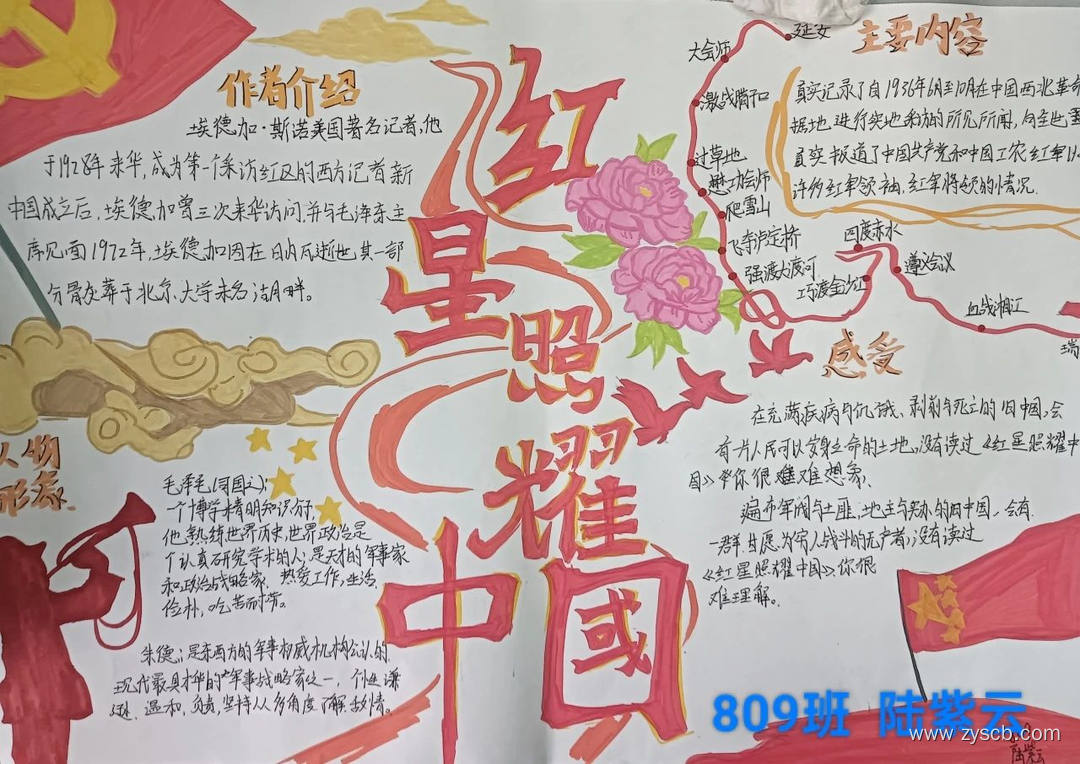 作者介绍
埃德加·斯诺美国著名记者,他
于1928年来华,成为第一个采访红区的西方记者新
中国成立后,埃德加曾三次来华访问,并与毛泽东主
席见面1972年,埃德加因在日内瓦逝世,其一部
分骨灰葬于北京大学未名湖畔。
红星照耀中國
主要内容
真实记录了自1936年6月至10月在中国西北革命
据地,进行实地采访的所见所闻,向全世
真实报道了中国共产党和中国工农红军以
许多红军领袖,红军将领的情况.
延安
大会师
激战腾子口
过草地
懋功会师
爬雪山
飞夺泸定桥
强渡大渡河
巧渡金沙江
四度赤水
遵义会议
血战湘江
瑞
感受
在充满疾病与饥饿、剥削与死亡的旧中国,会
有一片人民可以安身立命的土地,没有读过《红星照耀中
国》你很难难想象。
遍布军阀与土匪,地主与
的旧中国,会有
一群甘愿为穷人战斗的无产者,没有读过
《红星照耀中国》,你很
难理解。
人物
形象
毛泽
一个博学精明知识
他熟练世界历史,世界政治是
个认真研究学术的人;是天才的军事家
和政治战略家、热爱工作,生活
俭朴,吃苦耐劳。
朱德:是东西方的军事权威机构公认的
现代最具才华的军事战略家之一,个性谦
逊、温和,负责,坚持从多角度了解敌情。
809班 陆紫云
www.zyscb.com
陆紫云